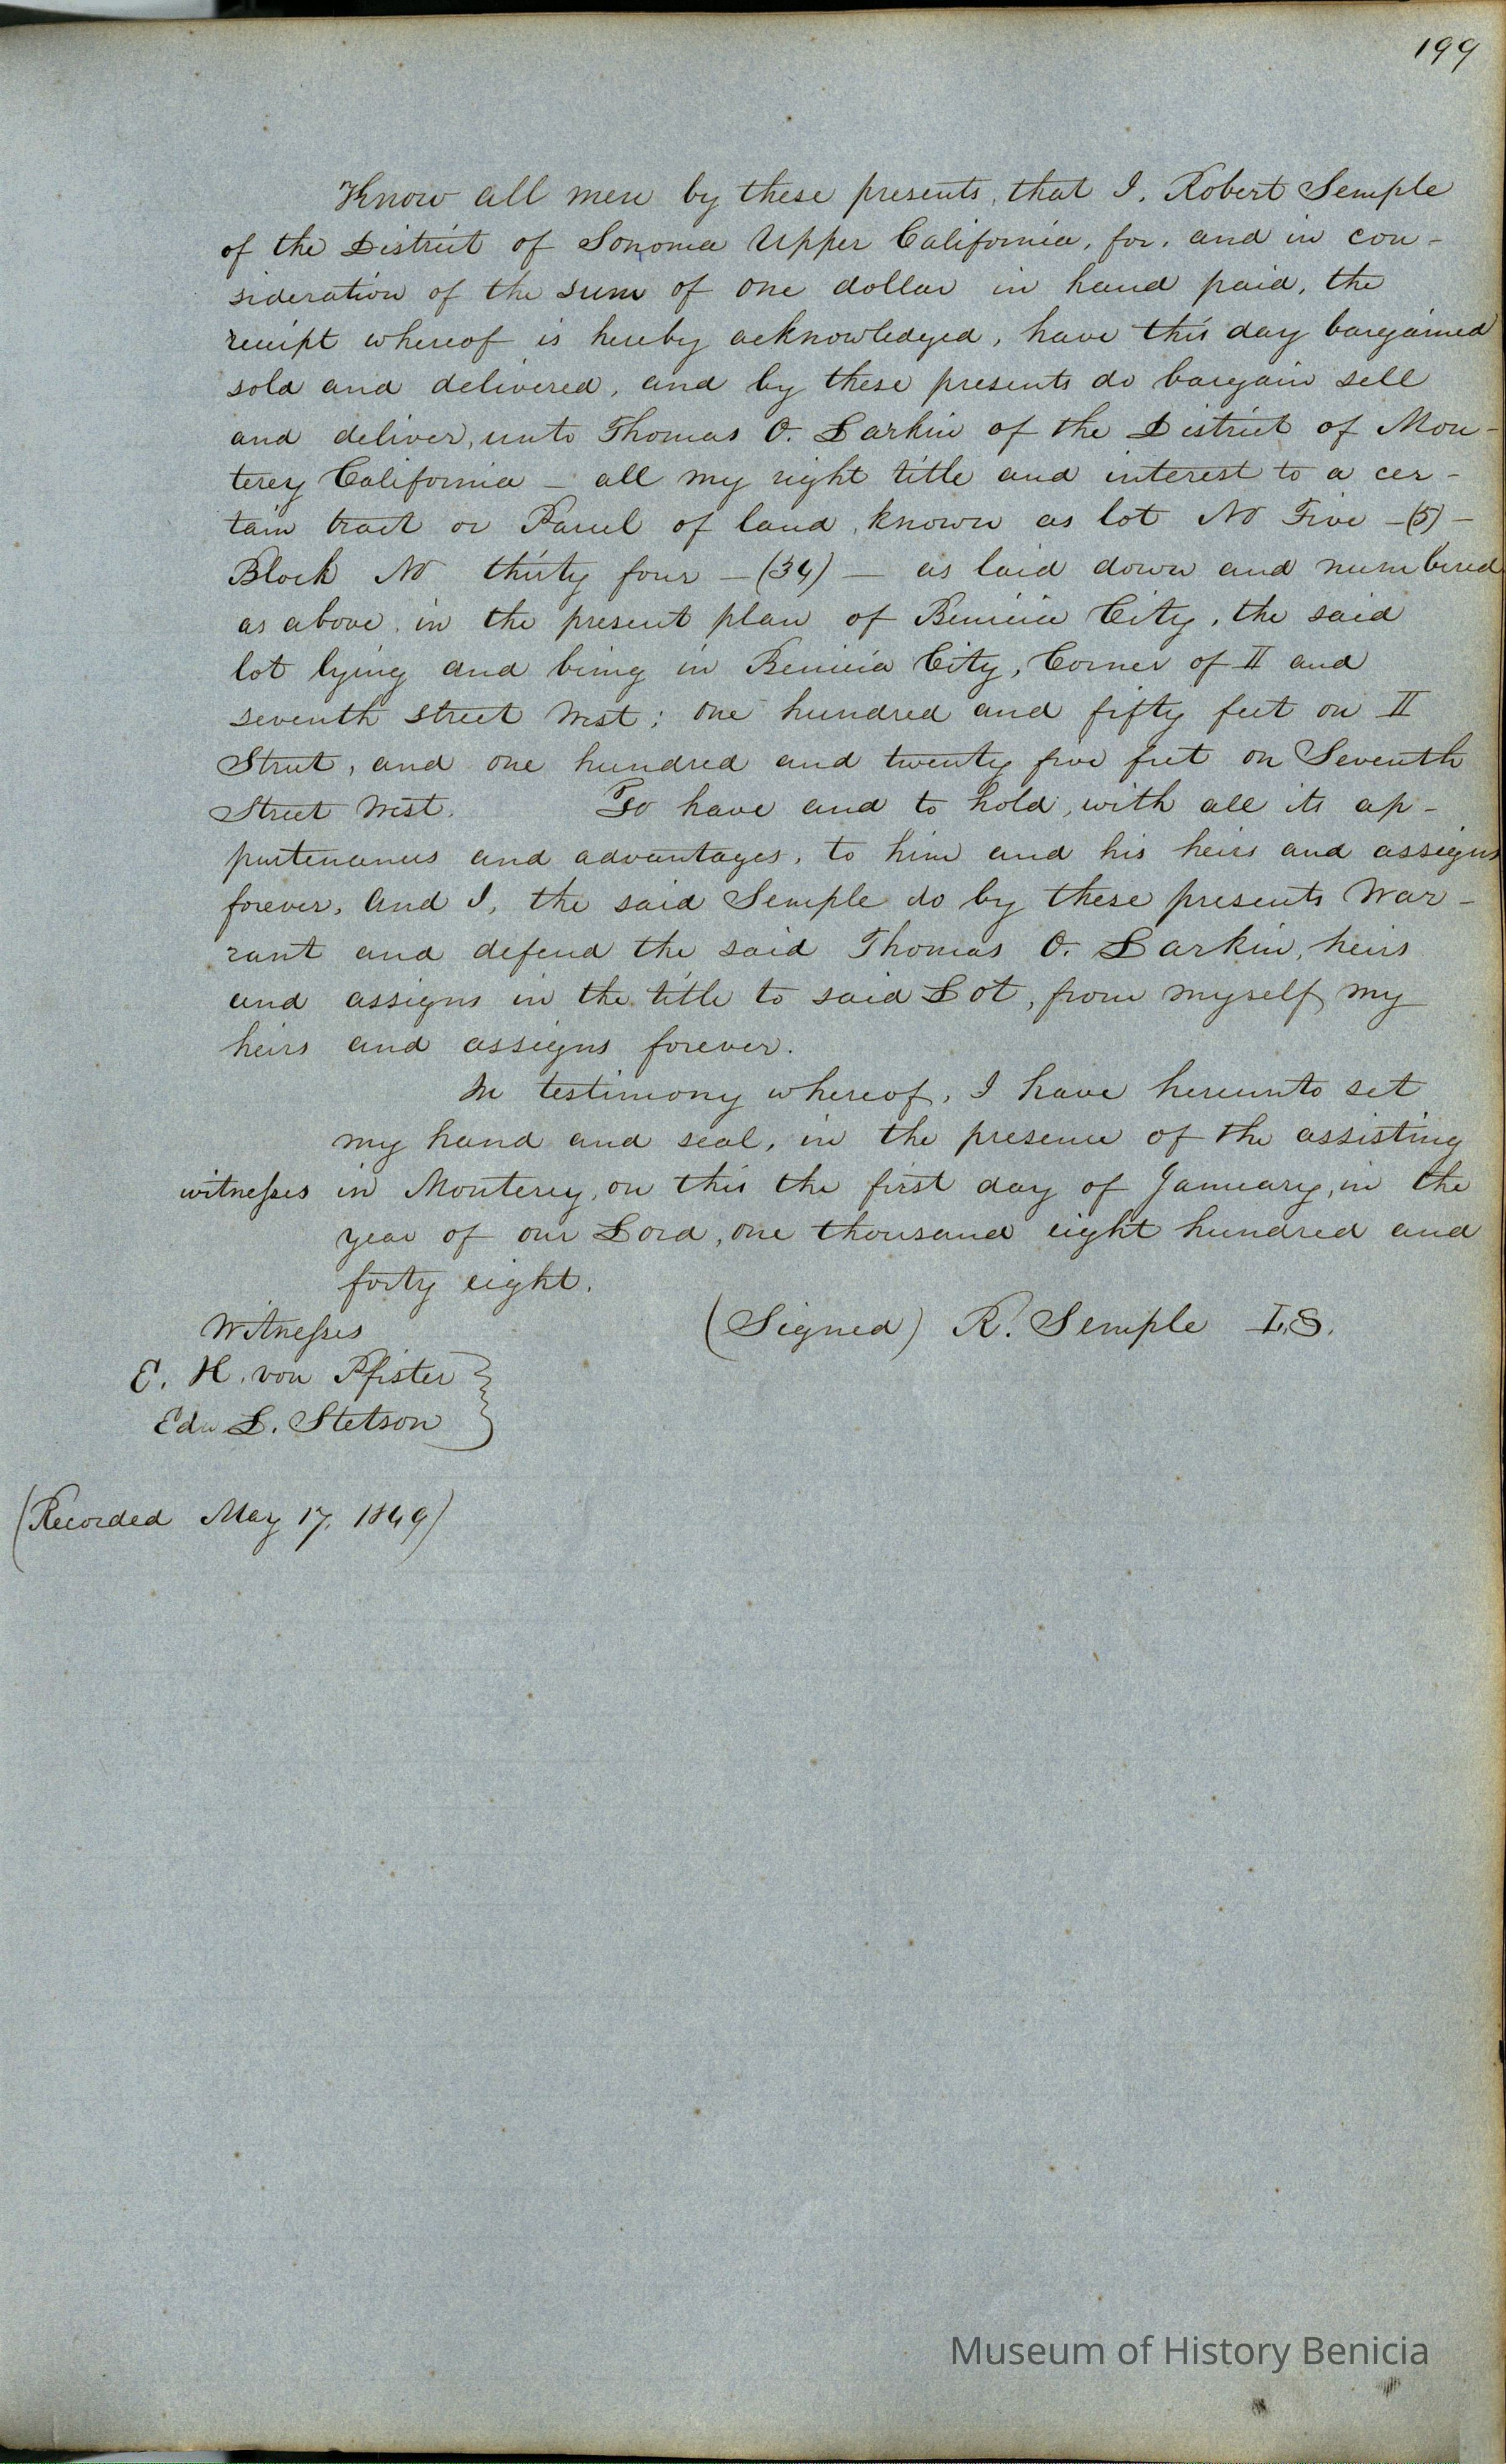 199
Know all men by these presents, that I, Robert Semple
of the District of Sonoma Upper California, for, and in con-
sideration of the sum of one dollar in hand paid, the
receipt whereof is hereby acknowledged, have this day bargained
sold and delivered, and by these presents do bargain sell
and deliver, unto Thomas O. Larkin of the District of Mon-
terey California - all my right title and interest to a cer-
tain tract or Parcel of land, known as lot No Five -(5)-
Block No thirty four - (34) - as laid down and numbered
as above, in the present plan of Benicia City, the said
lot lying and being in Benicia City, Corner of II and
seventh street West; one hundred and fifty feet on II
Street, and one hundred and twenty five feet on Seventh
Street West. To have and to hold, with all its ap-
purtenances and advantages, to him and his heirs and assigns
forever, And I, the said Semple do by these presents War-
rant and defend the said Thomas O. Larkin, heirs
and assigns in the title to said Lot, from myself, my
heirs and assigns forever.
In testimony whereof, I have hereunto set
my hand and seal, in the presence of the assisting
witnesses in Monterey, on this the first day of January, in the
year of our Lord, one thousand eight hundred and
forty eight.
Witnesses (Signed) R. Semple L.S.
E. H. von Pfister
Edw L. Stetson
(Recorded May 17, 1849)
Museum of History Benicia